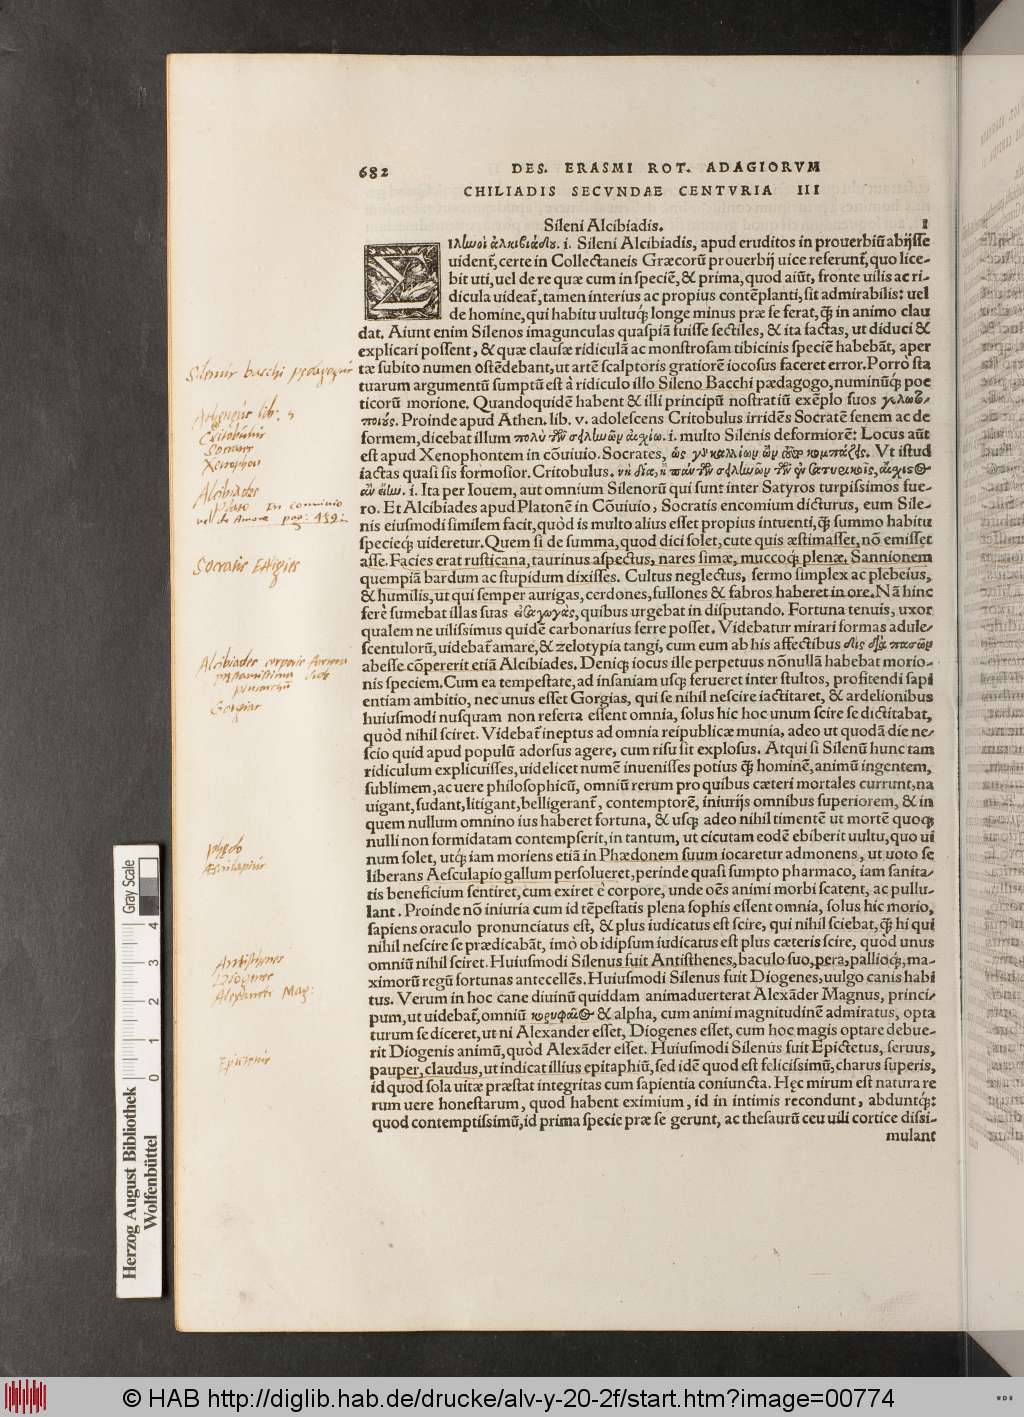 682
DES. ERASMI ROT. ADAGIORVM
CHILIADIS SECVNDAE CENTVRIA III
Sileni Alcibiadis. I
Σιλωοὶ ἀλκιβιάδου. i. Sileni Alcibiadis, apud eruditos in prouerbiũ abijsse
uident᷑, certe in Collectaneis Græcorũ prouerbij uice referunt᷑, quo lice-
bit uti, uel de re quæ cum in speciẽ, & prima, quod aiũt, fronte uilis ac ri-
dicula uideat᷑, tamen interius ac propius contẽplanti, sit admirabilis: uel
de homine, qui habitu uultuq́; longe minus præ se ferat, q̃ in animo clau
dat. Aiunt enim Silenos imagunculas quaspiã fuisse sectiles, & ita factas, ut diduci &
explicari possent, & quæ clausæ ridiculã ac monstrosam tibicinis speciẽ habebãt, aper
tæ subito numen ostẽdebant, ut artẽ scalptoris gratiorẽ iocosus faceret error. Porro sta
tuarum argumentũ sumptũ est à ridiculo illo Sileno Bacchi pædagogo, numinũq́; poe
ticorũ morione. Quandoquidẽ habent & illi principũ nostratiũ exẽplo suos γελωτο-
ποιούς. Proinde apud Athen. lib. v. adolescens Critobulus irridẽs Socratẽ senem ac de
formem, dicebat illum πολὺ τῶν σειλωῶν αἰσχίω. i. multo Silenis deformiorẽ: Locus aũt
est apud Xenophontem in cõuiuio. Socrates, ὡς γὺ καλλίων ὢν ἐμοῦ κομπάζεις. Vt istud
iactas quasi sis formosior. Critobulus. νὴ δία, ἢ πάντων σειλωῶν τῶν ἐν σατυρικοῖς, αἴσχιστος
ἂν εἴω. i. Ita per Iouem, aut omnium Silenorũ qui sunt inter Satyros turpissimos fue-
ro. Et Alcibiades apud Platonẽ in Cõuiuio, Socratis encomium dicturus, eum Sile-
nis eiusmodi similem facit, quòd is multo alius esset propius intuenti, q̃ summo habitu
specieq́; uideretur. Quem si de summa, quod dici solet, cute quis æstimasset, nõ emisset
asse. Facies erat rusticana, taurinus aspectus, nares simæ, muccoq́; plenæ. Sannionem
quempiã bardum ac stupidum dixisses. Cultus neglectus, sermo simplex ac plebeius,
& humilis, ut qui semper aurigas, cerdones, fullones & fabros haberet in ore. Nã hinc
ferè sumebat illas suas εἰσαγωγὰς, quibus urgebat in disputando. Fortuna tenuis, uxor
qualem ne uilissimus quidẽ carbonarius ferre posset. Videbatur mirari formas adule-
scentulorũ, uidebat᷑ amare, & zelotypia tangi, cum eum ab his affectibus δὶς διὰ πασῶν
abesse cõpererit etiã Alcibiades. Deniq; iocus ille perpetuus nõnullã habebat morio-
nis speciem. Cum ea tempestate, ad insaniam usq; ferueret inter stultos, profitendi sapi
entiam ambitio, nec unus esset Gorgias, qui se nihil nescire iactitaret, & ardelionibus
huiusmodi nusquam non referta essent omnia, solus hic hoc unum scire se dictitabat,
quòd nihil sciret. Videbat᷑ ineptus ad omnia reipublicæ munia, adeo ut quodã die ne-
scio quid apud populũ adorsus agere, cum risu sit explosus. Atqui si Silenũ hunc tam
ridiculum explicuisses, uidelicet numẽ inuenisses potius q̃ hominẽ, animũ ingentem,
sublimem, ac uere philosophicũ, omniũ rerum pro quibus cæteri mortales currunt, na
uigant, sudant, litigant, belligerant᷑, contemptorẽ, iniurijs omnibus superiorem, & in
quem nullum omnino ius haberet fortuna, & usq; adeo nihil timentẽ ut mortẽ quoq;
nulli non formidatam contempserit, in tantum, ut cicutam eodẽ ebiberit uultu, quo ui
num solet, utq́; iam moriens etiã in Phædonem suum iocaretur admonens, ut uoto se
liberans Aesculapio gallum persolueret, perinde quasi sumpto pharmaco, iam sanita-
tis beneficium sentiret, cum exiret è corpore, unde oẽs animi morbi scatent, ac pullu-
lant. Proinde nõ iniuria cum id tẽpestatis plena sophis essent omnia, solus hic morio,
sapiens oraculo pronunciatus est, & plus iudicatus est scire, qui nihil sciebat, q̃ hi qui
nihil nescire se prædicabãt, imò ob idipsum iudicatus est plus cæteris scire, quòd unus
omniũ nihil sciret. Huiusmodi Silenus fuit Antisthenes, baculo suo, pera, pallioq́;, ma-
ximorũ regũ fortunas antecellẽs. Huiusmodi Silenus fuit Diogenes, uulgo canis habi
tus. Verum in hoc cane diuinũ quiddam animaduerterat Alexãder Magnus, princi-
pum, ut uidebat᷑, omniũ κορυφαῖος & alpha, cum animi magnitudinẽ admiratus, opta
turum se diceret, ut ni Alexander esset, Diogenes esset, cum hoc magis optare debue-
rit Diogenis animũ, quòd Alexãder esset. Huiusmodi Silenus fuit Epictetus, seruus,
pauper, claudus, ut indicat illius epitaphiũ, sed idẽ quod est felicissimũ, charus superis,
id quod sola uitæ præstat integritas cum sapientia coniuncta. Hęc mirum est natura re
rum uere honestarum, quod habent eximium, id in intimis recondunt, abduntq́;:
quod contemptissimũ, id prima specie præ se gerunt, ac thesaurũ ceu uili cortice dissi-
mulant
Silenus bacchi pedagogus
Athenaeus lib. 5
Critobulus
Socrates
Xenophon
Alcibiades
Plato In conuiuio
vel de Amore pag: 439:
Socratis Effigies
Alcibiades corporis forma
prestantissima
Gorgias
Phędo
Aesculapius
Antisthenes
Diogenes
Alexander Mag:
Epictetus
Gray Scale
4 3 2 1 0
Herzog August Bibliothek
Wolfenbüttel
© HAB http://diglib.hab.de/drucke/alv-y-20-2f/start.htm?image=00774